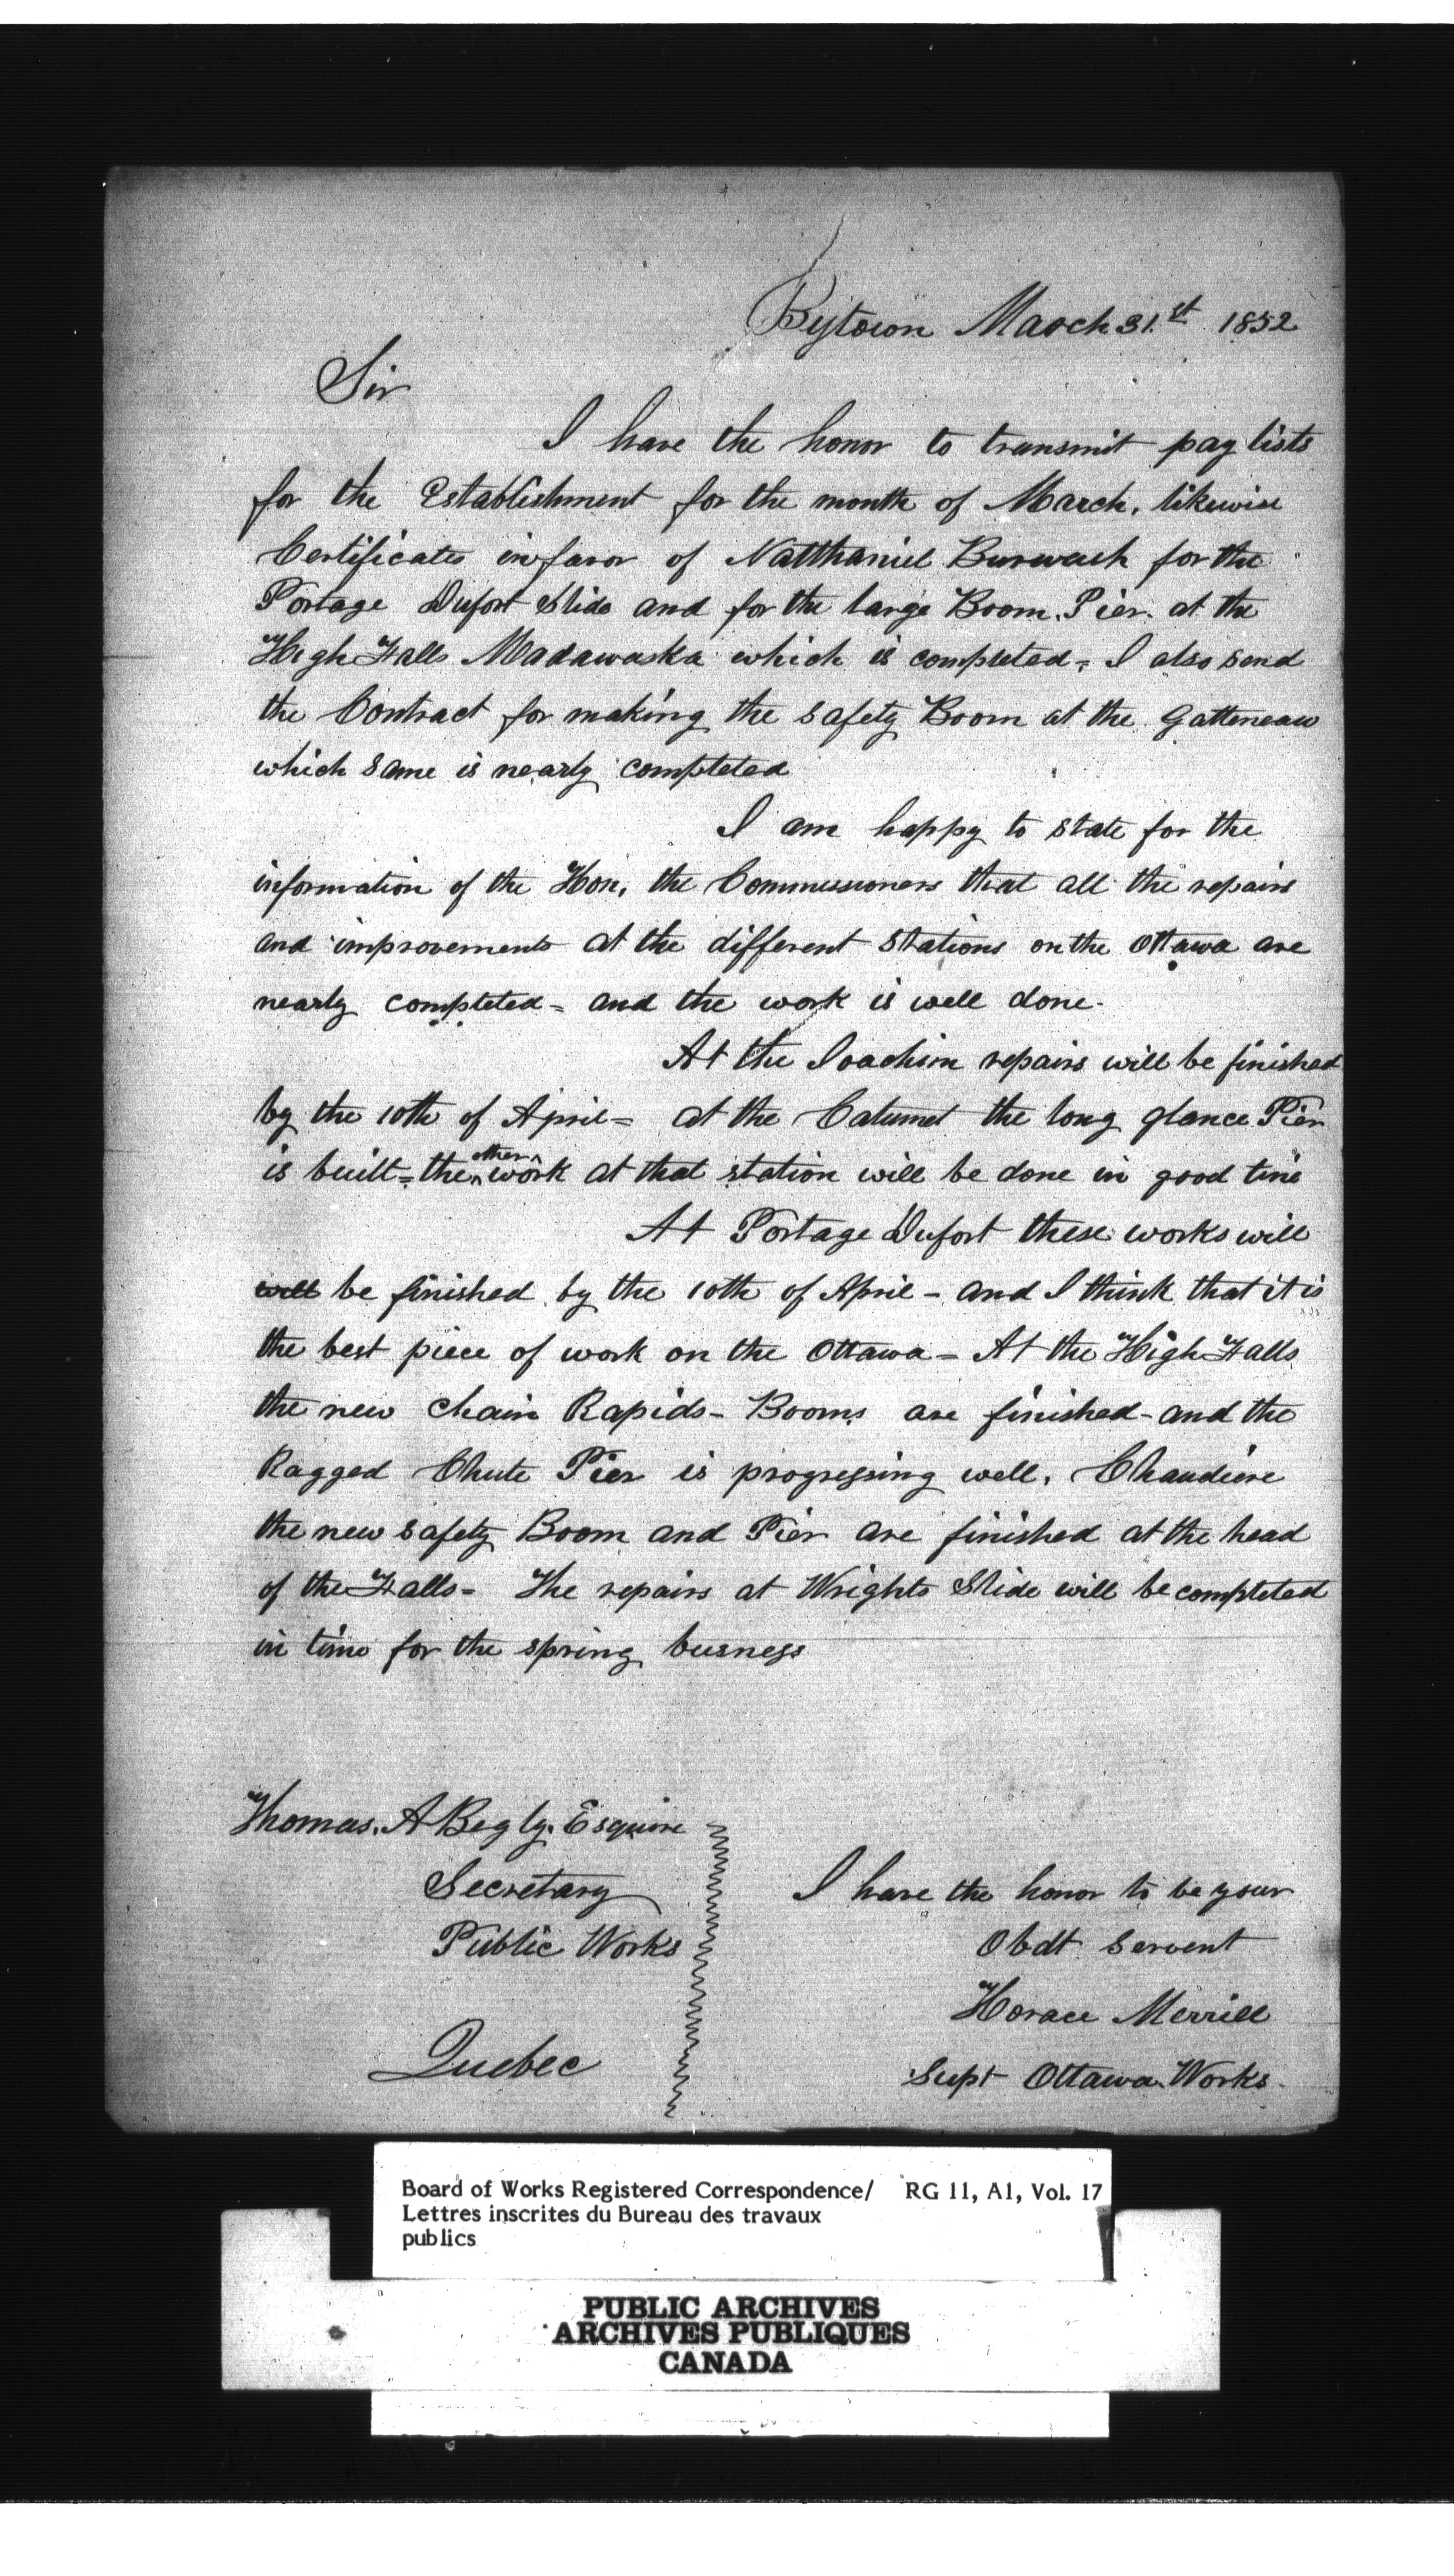 Bytown March 31.st 1852
Sir
I have the honor to transmit pay lists
for the Establishment for the month of March, likewise
Certificates in favor of Natthaniel Burwash for the
Portage Dufort Slide and for the large Boom Pier at the
High Falls Madawaska which is completed = I also send
the Contract for making the safety Boom at the Gatteneau
which same is nearly completed
I am happy to state for the
information of the Hon, the Commissioners that all the repairs
and improvements at the different Stations on the Ottawa are
nearly completed = and the work is well done -
At the Joachim repairs will be finished
by the 10th of April = at the Calumet the long glance Pier
is built = the other work at that station will be done in good time
At Portage Dufort these works will
will be finished by the 10th of April - and I think that it is
the best piece of work on the Ottawa - At the High Falls
the new chain Rapids - Booms are finished - and the
Ragged Chute Pier is progressing well, Chaudiere
the new safety Boom and Pier are finished at the head
of the Falls = The repairs at Wrights Slide will be completed
in time for the spring busness
Thomas. A Begly. Esquire
Secretary
Public Works
Quebec
I have the honor to be your
Obdt servent
Horace Merrill
Supt Ottawa Works.
Board of Works Registered Correspondence/ RG 11, A1, Vol. 17
Lettres inscrites du Bureau des travaux
publics
PUBLIC ARCHIVES
ARCHIVES PUBLIQUES
CANADA